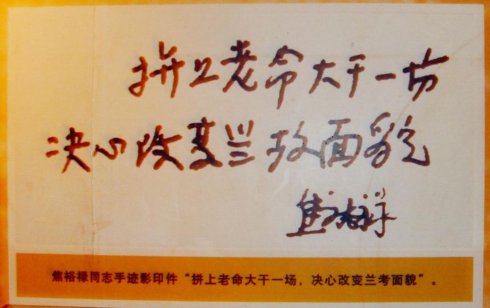 拼上老命大干一场
决心改变兰考面貌
焦裕禄
焦裕禄同志手迹影印件“拼上老命大干一场，决心改变兰考面貌”。